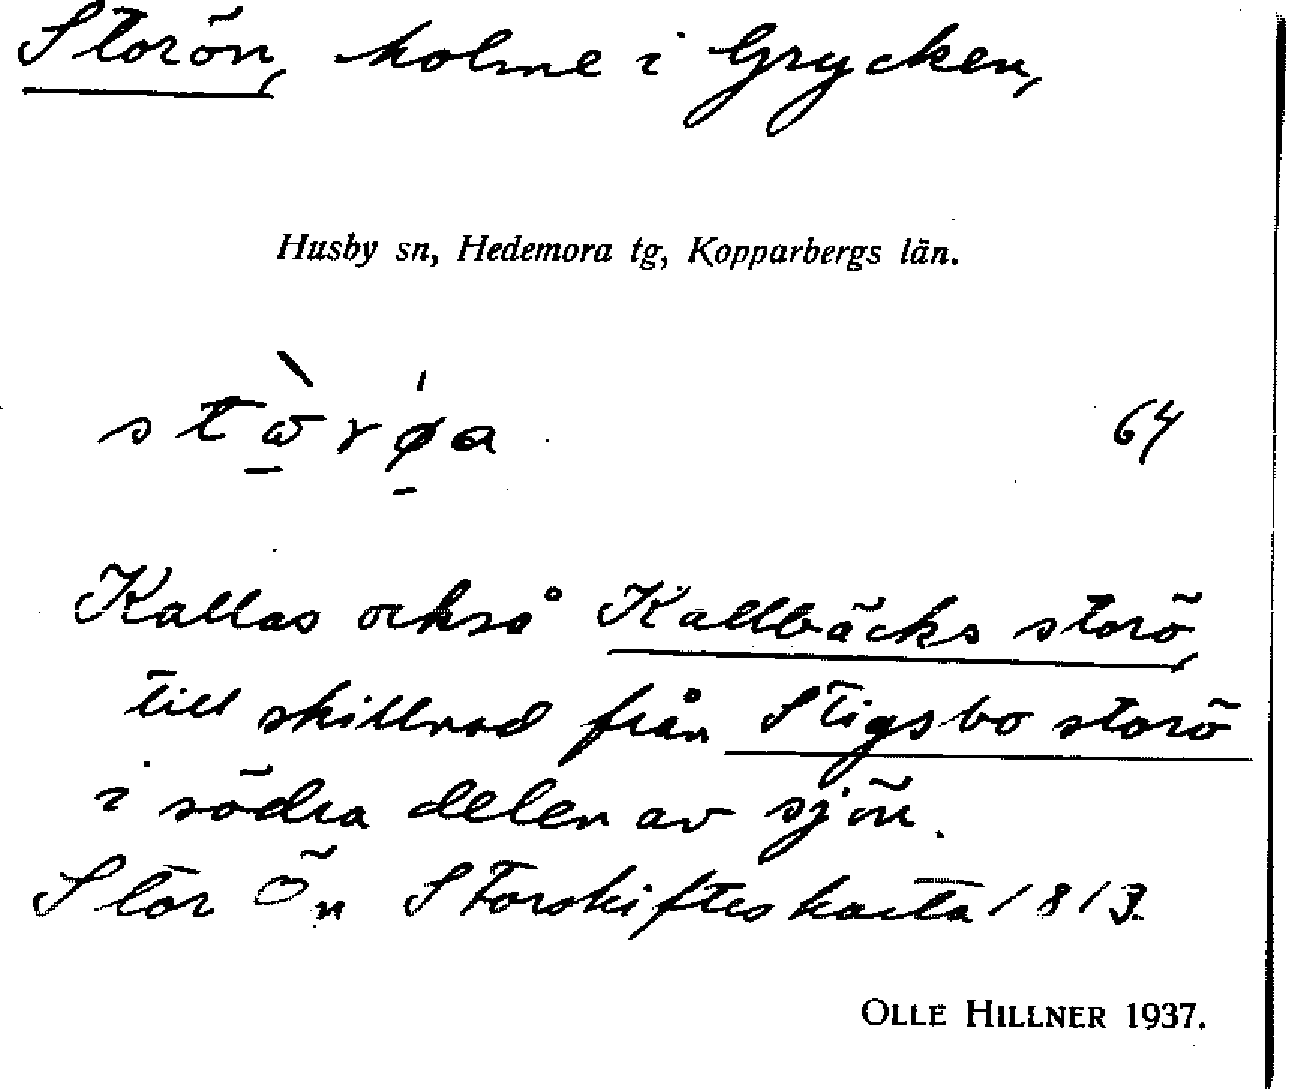 Storön, holme i Grycken,
Husby sn, Hedemora tg, Kopparbergs län.
64
Kallas också Kallbäcks storö,
till skillnad från Stigsbo storö
i södra delen av sjön.
Stor Ön Storskifteskarta 1813.
OLLE HILLNER 1937.